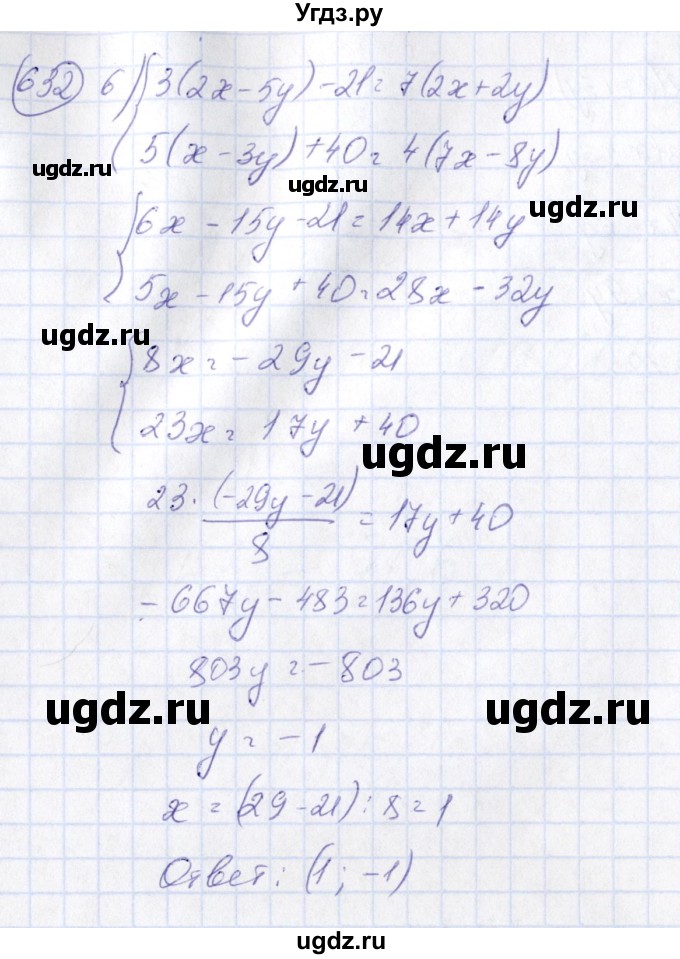 Угдз.ру
632 б) { 3(2x-5y) -21 = 7(2x+2y)
5(x-3y)+40 = 4(7x-8y)
ugdz.ru ugdz.ru
{ 6x -15y -21 = 14x+14y
5x -15y +40 = 28x -32y
ugdz.ru
{ 8x = -29y -21
23x = 17y +40
ugdz.ru
23·(-29y -21)/8 = 17y+40
-667y -483 = 136y+320
803y = -803
ugdz.ru ugdz.ru
y = -1
x = (29-21):8 = 1
Ответ: (1; -1)
ugdz.ru